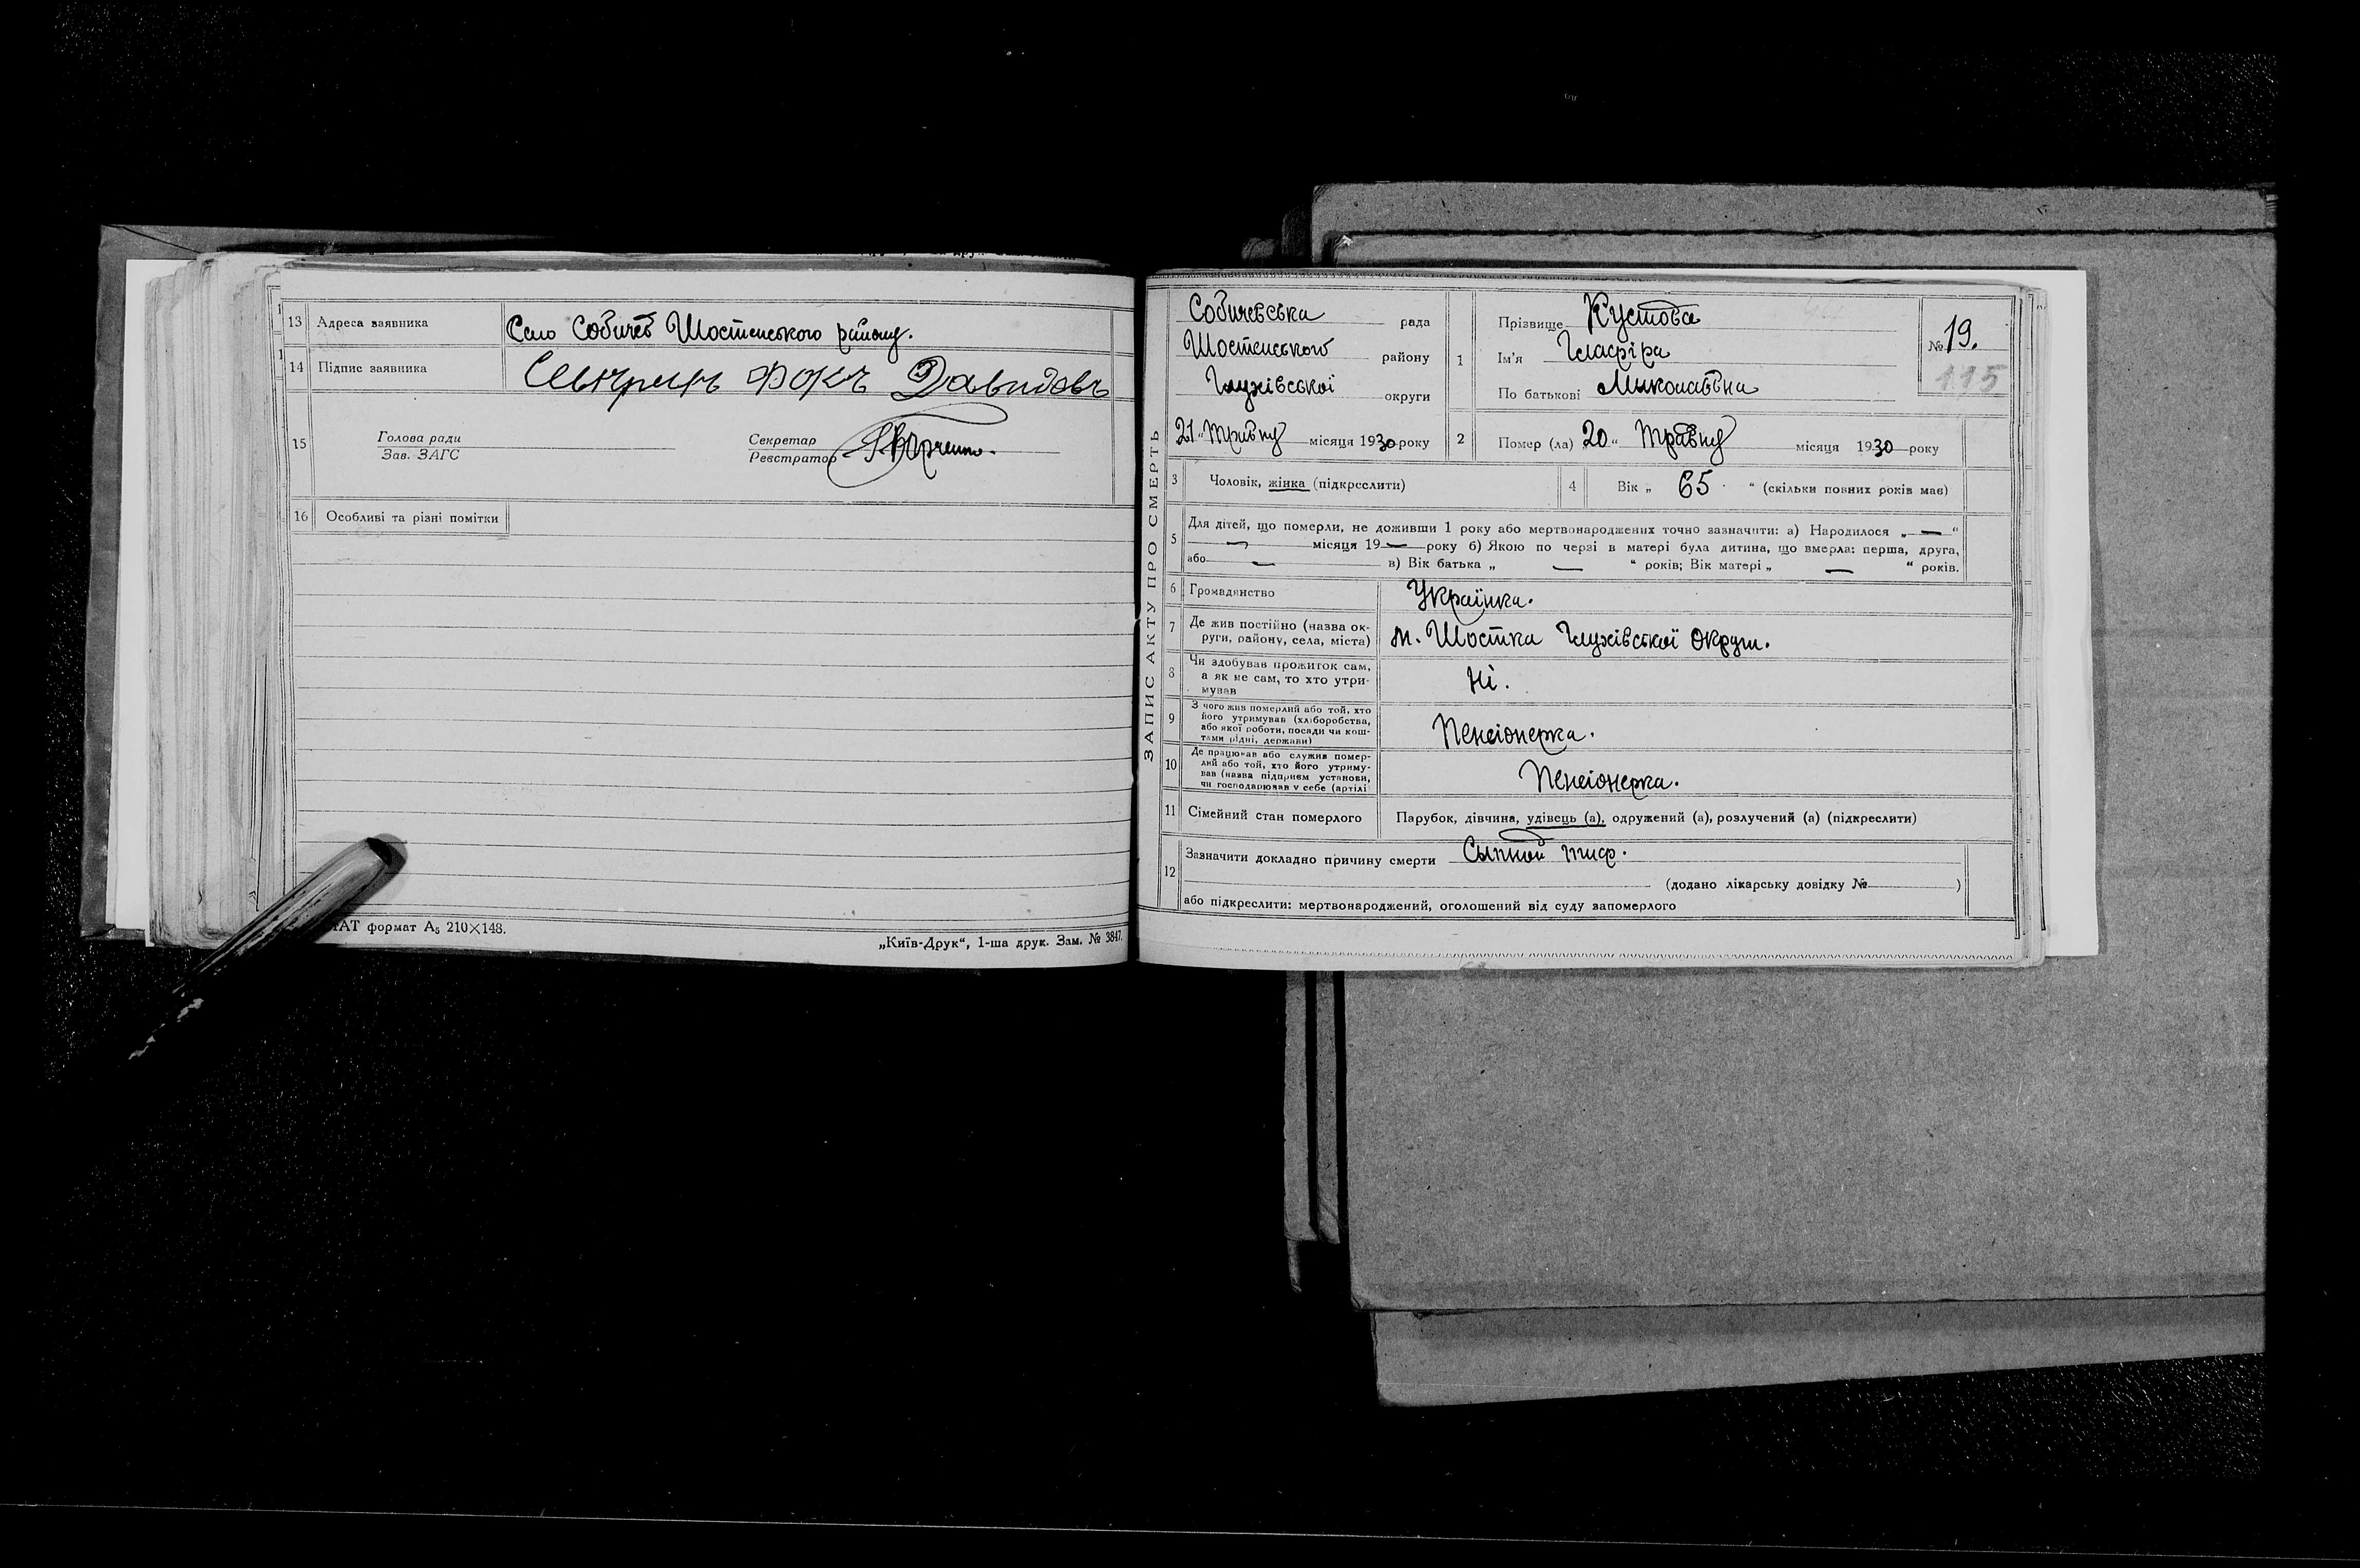 13 Адреса заявника Село Собичев Шостенського району.
14 Підпис заявника Давидовъ
15 Голова ради
Зав. ЗАГС
Секретар
Реєстратор
16 Особливі та різні помітки
АТ формат А5 210×148.
„Київ-Друк“, 1-ша друк. Зам. № 3847.
ЗАПИС АКТУ ПРО СМЕРТЬ
Собичевська рада
Шостенського району
Глухівської округи
„21“ Травня місяця 1930 року
1 Прізвище Кустова
Ім'я Гласфіра
По батькові Миколаївна
№ 19.
115
2 Помер (ла) „20“ Травня місяця 1930 року
3 Чоловік, жінка (підкреслити)
4 Вік „ 65 “ (скільки повних років має)
5 Для дітей, що померли, не доживши 1 року або мертвонароджених точно зазначити: а) Народилося „ — “
— місяця 19 — року б) Якою по черзі в матері була дитина, що вмерла: перша, друга,
або — в) Вік батька „ — “ років; Вік матері „ — “ років.
6 Громадянство Українка.
7 Де жив постійно (назва ок-
руги, району, села, міста) м. Шостка Глухівської Округи.
8 Чи здобував прожиток сам,
а як не сам, то хто утри-
мував Ні.
9 З чого жив померлий або той, хто
його утримував (хліборобства,
або якої роботи, посади чи кош-
тами рідні, держави) Пенсіонерка.
10 Де працював або служив помер-
лий або той, хто його утриму-
вав (назва підприєм установи,
чи господарював у себе (артілі Пенсіонерка.
11 Сімейний стан померлого Парубок, дівчина, удівець (а), одружений (а), розлучений (а) (підкреслити)
12 Зазначити докладно причину смерти Сыпной тиф.
(додано лікарську довідку № )
або підкреслити: мертвонароджений, оголошений від суду запомерлого